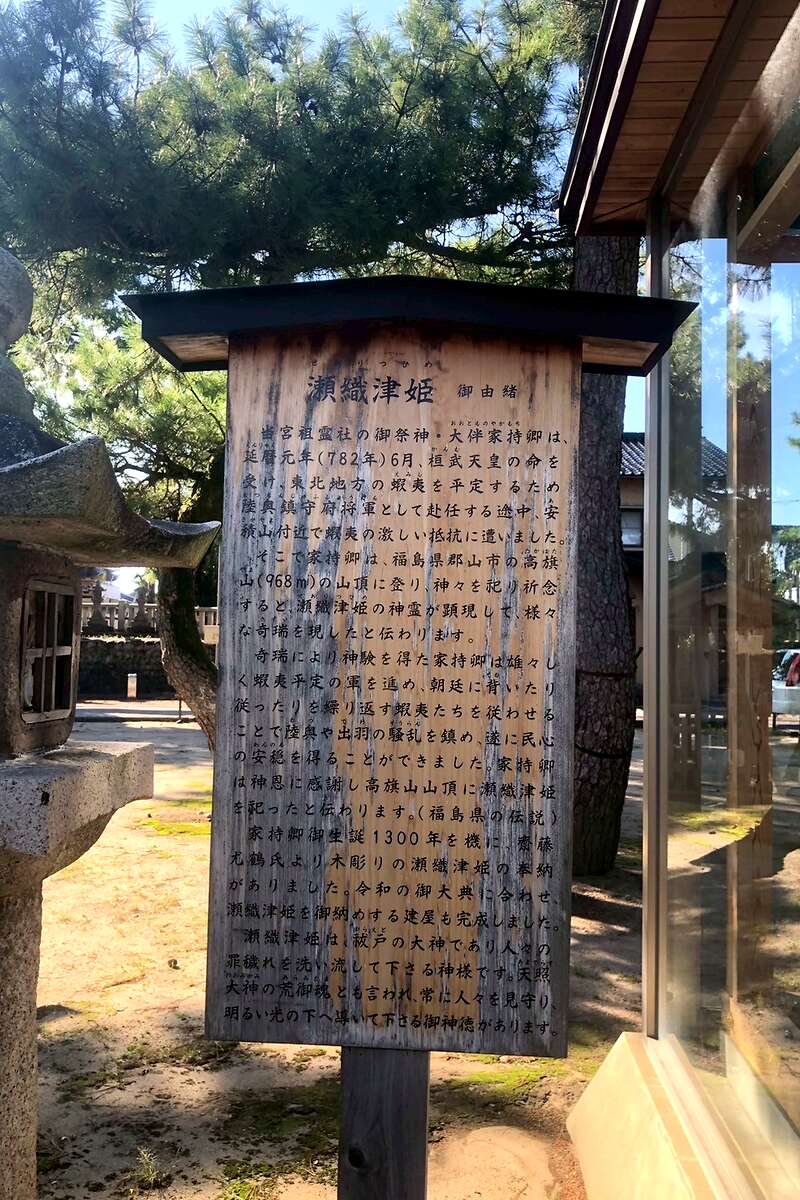 瀬織津姫 御由緒
当宮祖霊社の御祭神・大伴家持卿は、
延暦元年(782年)6月、桓武天皇の命を
受け、東北地方の蝦夷を平定するため
陸奥鎮守府将軍として赴任する途中、安
積山付近で蝦夷の激しい抵抗に遭いました。
そこで家持卿は、福島県郡山市の高旗
山(968m)の山頂に登り、神々を祀り祈念
すると、瀬織津姫の神霊が顕現して、様々
な奇瑞を現したと伝わります。
奇瑞により神験を得た家持卿は雄々し
く蝦夷平定の軍を進め、朝廷に背いたり
従ったりを繰り返す蝦夷たちを従わせる
ことで陸奥や出羽の騒乱を鎮め、遂に民心
の安穏を得ることができました。家持卿
は神恩に感謝し高旗山山頂に瀬織津姫
を祀ったと伝わります。(福島県の伝説)
家持卿御生誕1300年を機に、齋藤
尤鶴氏より木彫りの瀬織津姫の奉納
がありました。令和の御大典に合わせ、
瀬織津姫を御納めする建屋も完成しました。
瀬織津姫は、祓戸の大神であり人々の
罪穢れを洗い流して下さる神様です。天照
大神の荒御魂とも言われ、常に人々を見守り、
明るい光の下へ導いて下さる御神徳があります。